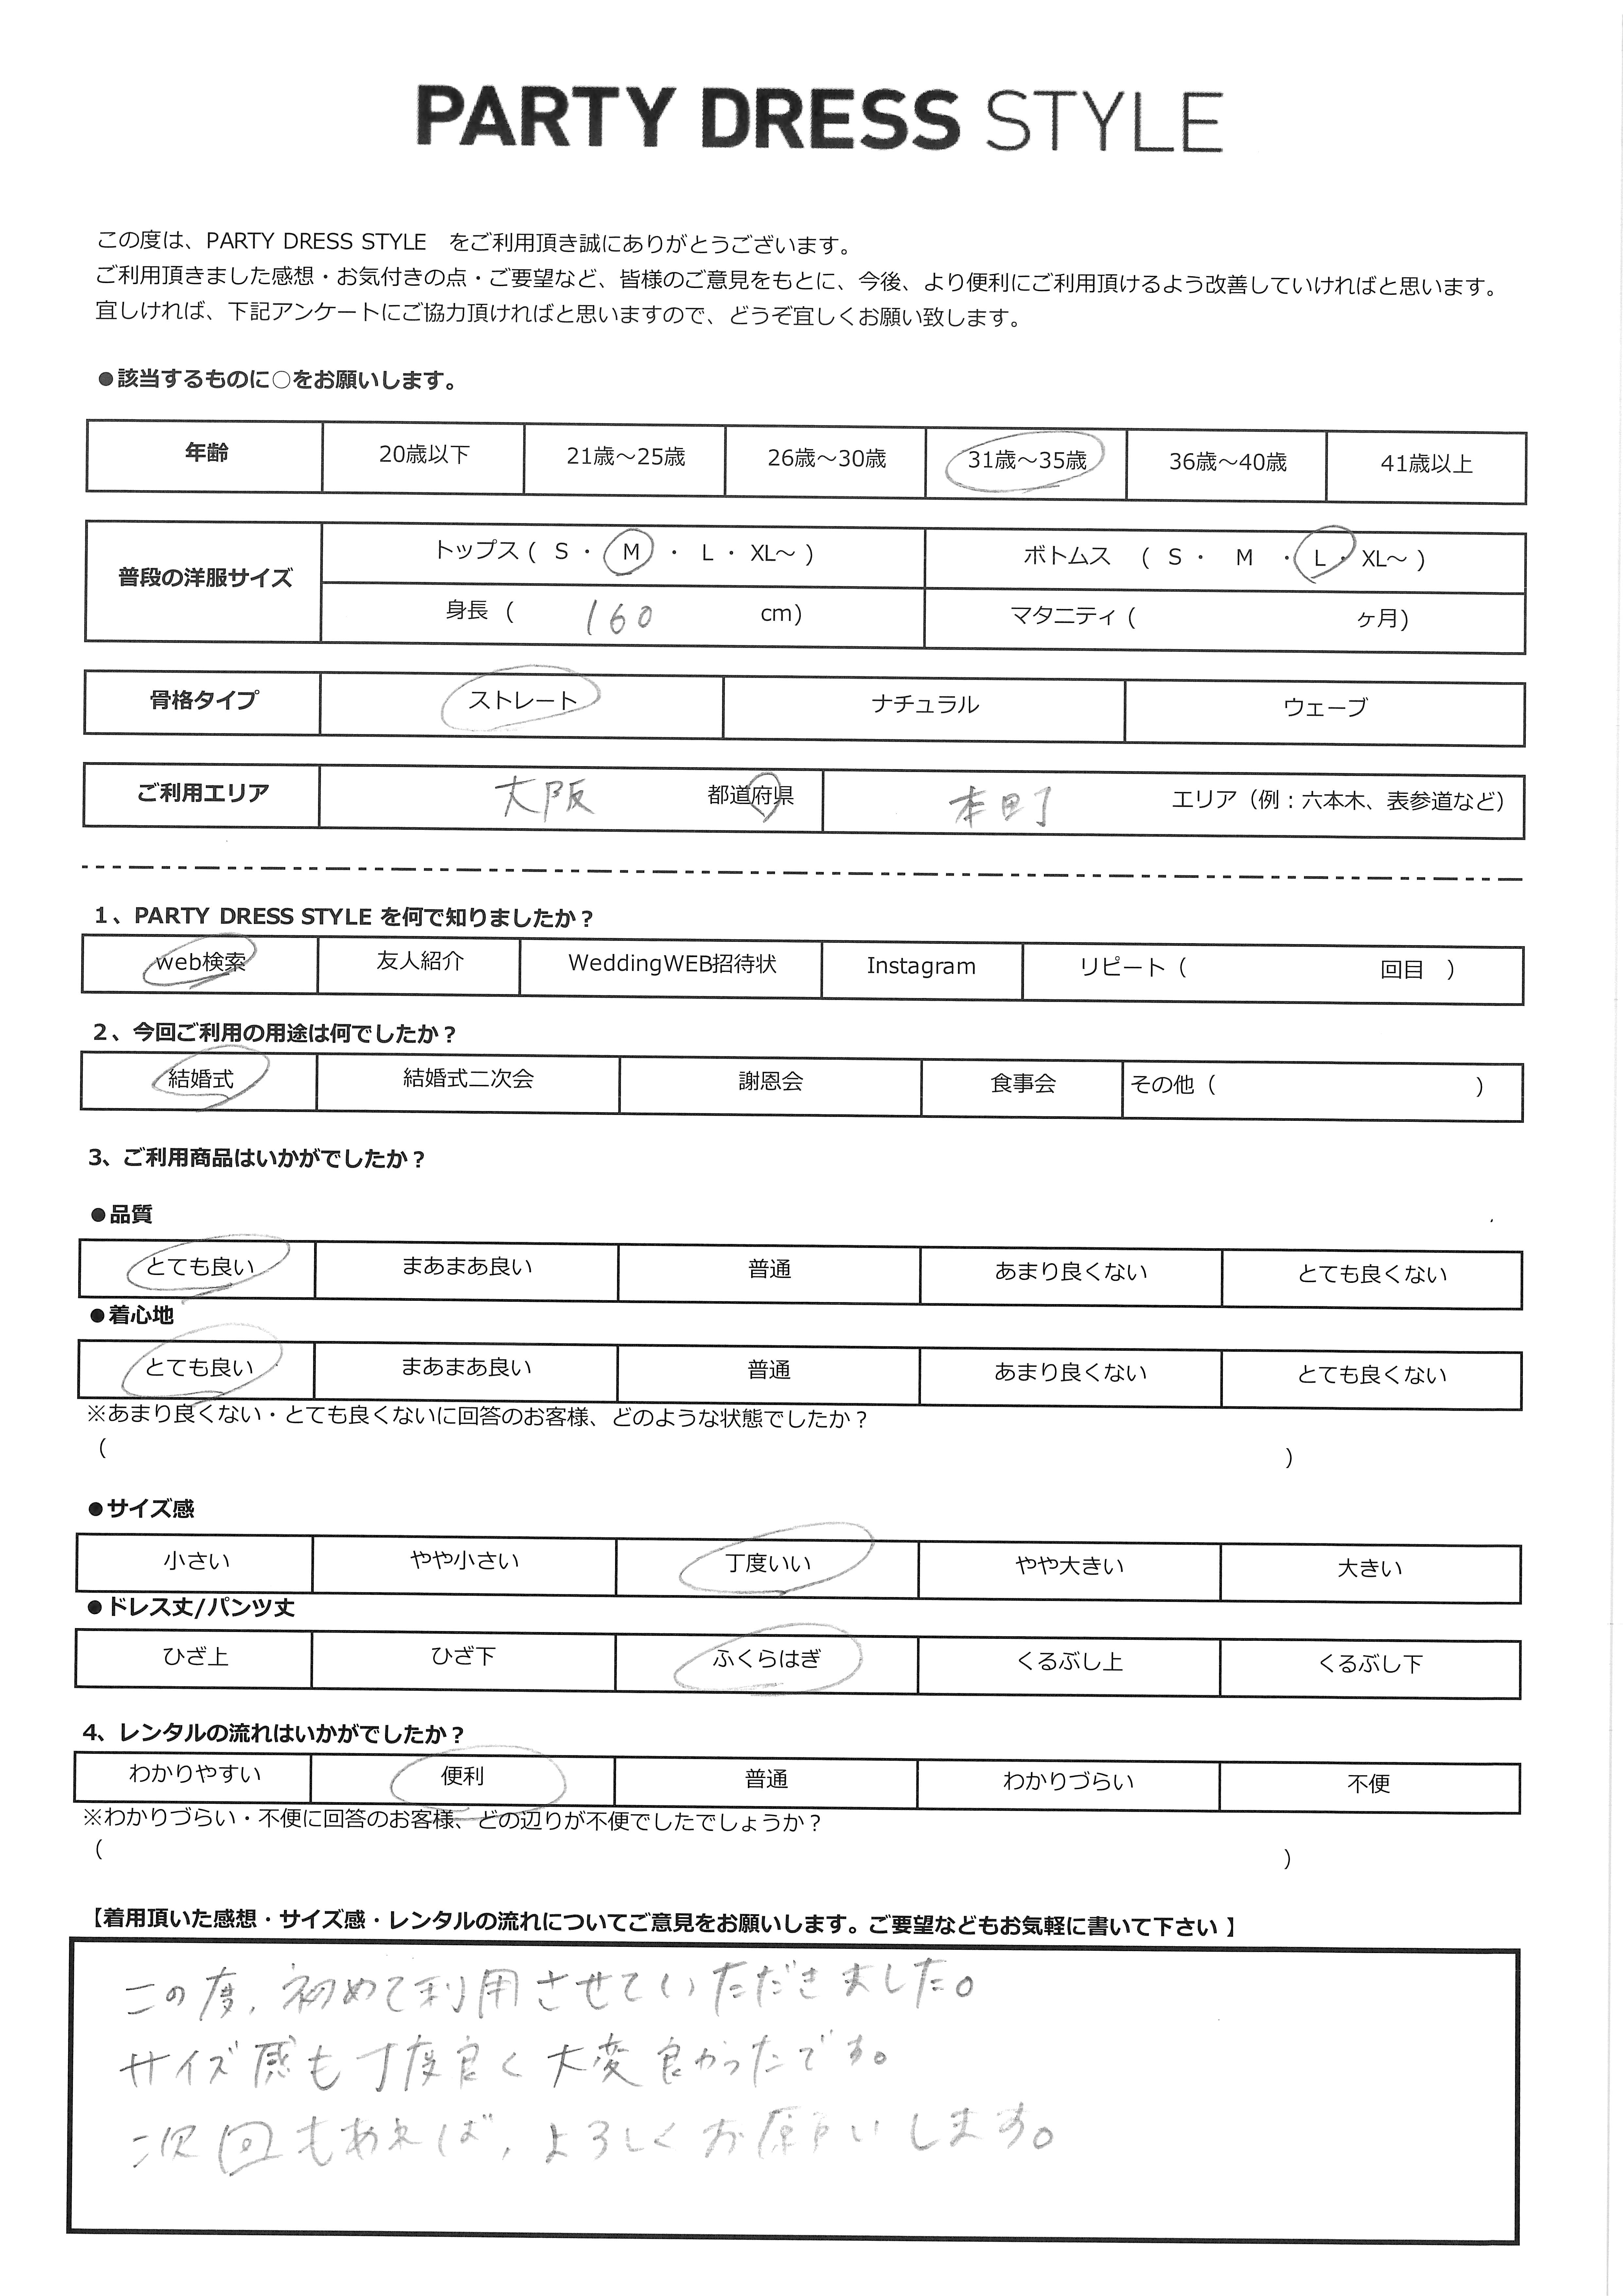 PARTY DRESS STYLE
この度は、PARTY DRESS STYLE　をご利用頂き誠にありがとうございます。
ご利用頂きました感想・お気付きの点・ご要望など、皆様のご意見をもとに、今後、より便利にご利用頂けるよう改善していければと思います。
宜しければ、下記アンケートにご協力頂ければと思いますので、どうぞ宜しくお願い致します。
●該当するものに○をお願いします。
年齢 20歳以下 21歳～25歳 26歳～30歳 31歳～35歳 36歳～40歳 41歳以上
普段の洋服サイズ
トップス ( S ・ M ・ L ・ XL～ ) ボトムス ( S ・ M ・ L ・ XL～ )
身長 ( 160 cm) マタニティ ( ヶ月)
骨格タイプ ストレート ナチュラル ウェーブ
ご利用エリア 大阪 都道府県 本町 エリア（例：六本木、表参道など）
1、PARTY DRESS STYLE を何で知りましたか？
web検索 友人紹介 WeddingWEB招待状 Instagram リピート（ 回目 ）
2、今回ご利用の用途は何でしたか？
結婚式 結婚式二次会 謝恩会 食事会 その他（ ）
3、ご利用商品はいかがでしたか？
●品質
とても良い まあまあ良い 普通 あまり良くない とても良くない
●着心地
とても良い まあまあ良い 普通 あまり良くない とても良くない
※あまり良くない・とても良くないに回答のお客様、どのような状態でしたか？
（ ）
●サイズ感
小さい やや小さい 丁度いい やや大きい 大きい
●ドレス丈/パンツ丈
ひざ上 ひざ下 ふくらはぎ くるぶし上 くるぶし下
4、レンタルの流れはいかがでしたか？
わかりやすい 便利 普通 わかりづらい 不便
※わかりづらい・不便に回答のお客様、どの辺りが不便でしたでしょうか？
（ ）
【着用頂いた感想・サイズ感・レンタルの流れについてご意見をお願いします。ご要望などもお気軽に書いて下さい 】
この度、初めて利用させていただきました。
サイズ感も丁度良く大変良かったです。
次回もあれば、よろしくお願いします。